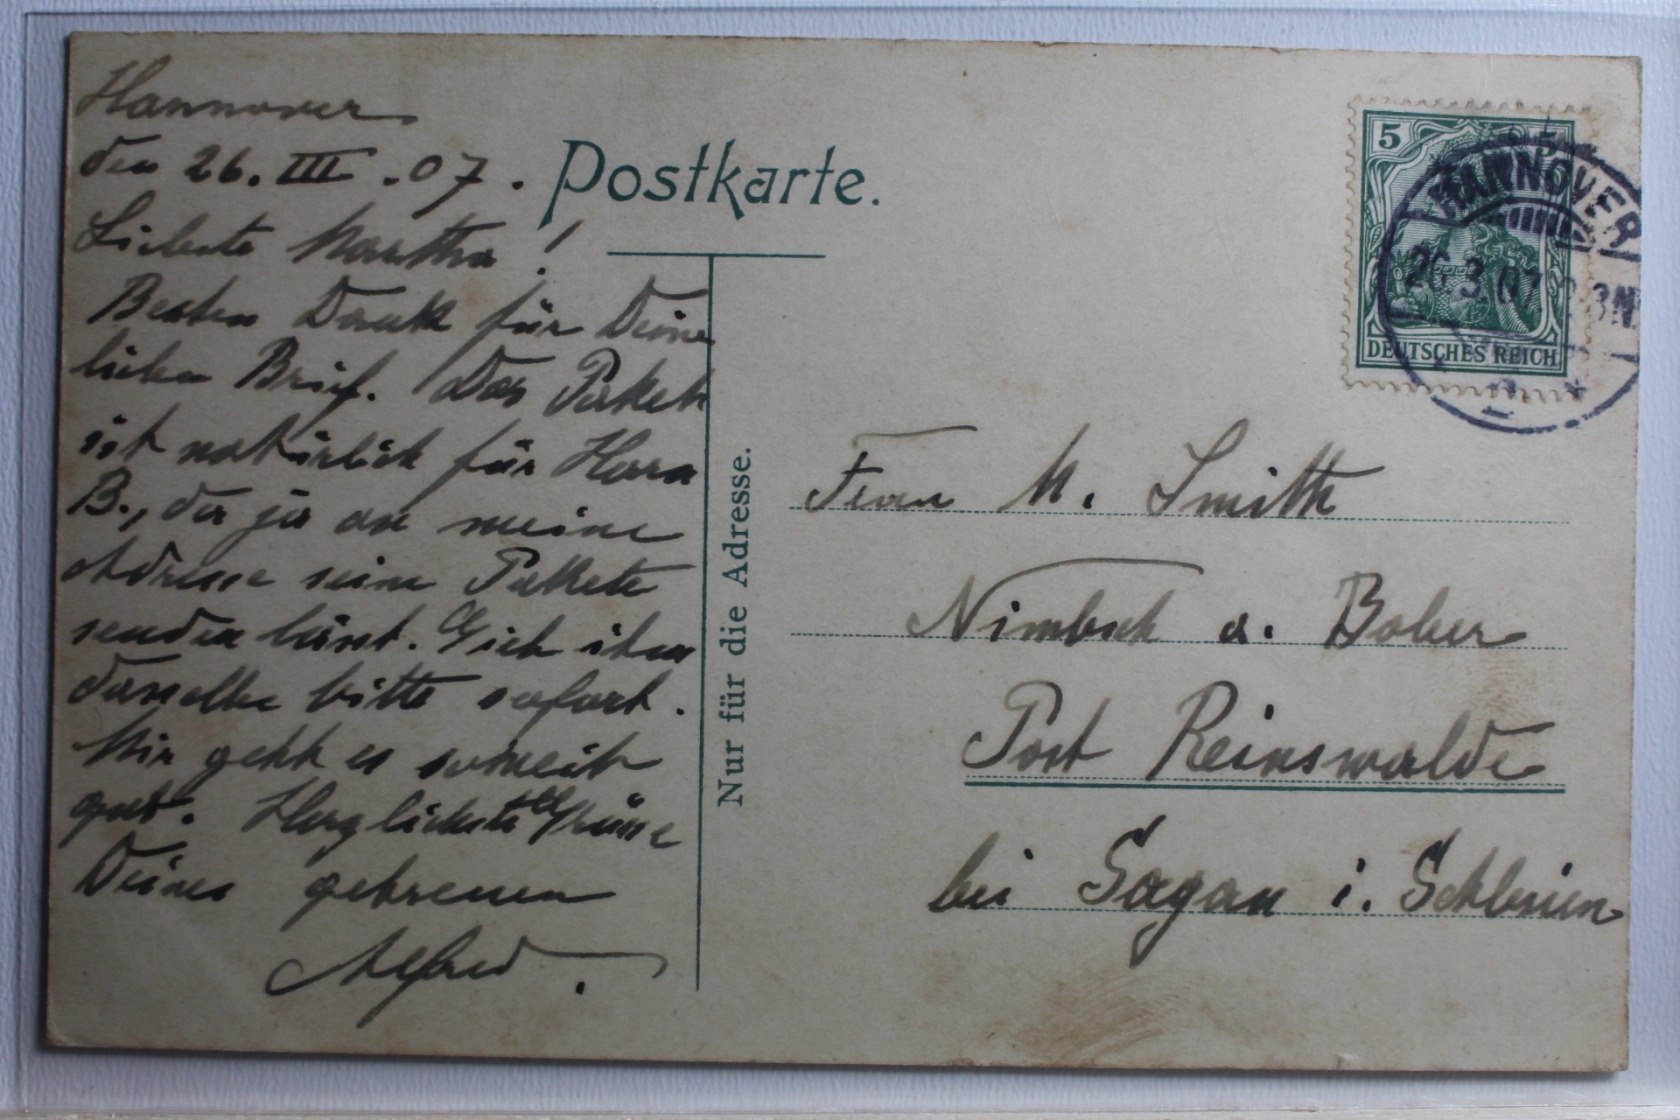 Hannover.
den 26. III. 07.
Liebste Martha!
Besten Dank für Deine
lieben Brief. Das Paket
ist natürlich für Herrn
B., da ja an meine
Adresse seine Pakete
senden lässt. Gieb ihm
dasselbe bitte sofort.
Mir geht es soweit
gut. Herzlichste Grüsse
Deines getreuen
Alfred.
Postkarte.
Nur für die Adresse.
5
DEUTSCHES REICH
HANNOVER
26.3.07. 3N
Frau M. Smith
Nimbsch a. Bober
Post Reinswalde
bei Sagan i. Schlesien